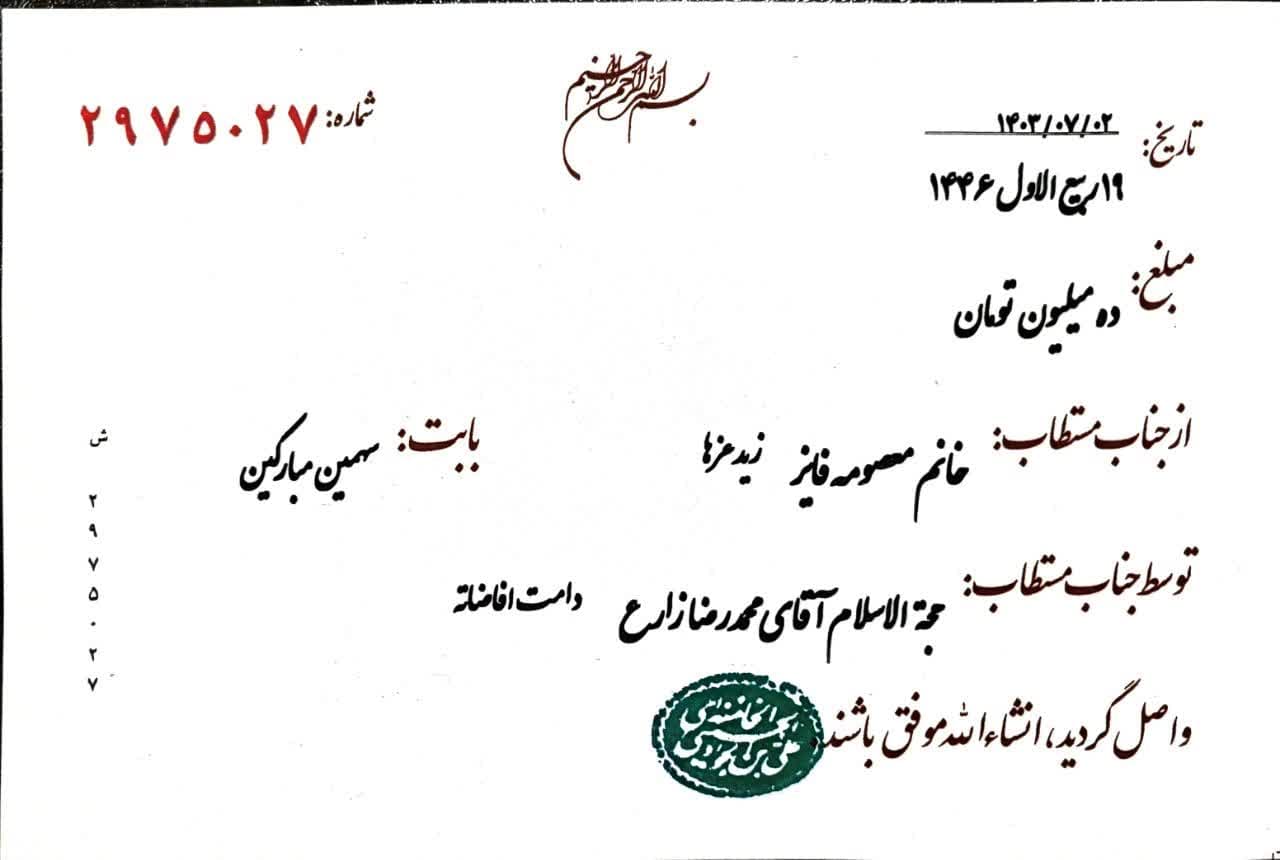 بسم الله الرحمن الرحیم
شماره: ۲۹۷۵۰۲۷
تاریخ: ۱۴۰۳/۰۷/۰۲
۱۹ ربیع الاول ۱۴۴۶
مبلغ: ده میلیون تومان
از جناب مستطاب: خانم معصومه فایز زید عزها بابت: سهمین مبارکین
توسط جناب مستطاب: حجة الاسلام آقای محمدرضا زارع دامت افاضاته
واصل گردید، انشاءالله موفق باشند.
ش
۲
۹
۷
۵
۰
۲
۷